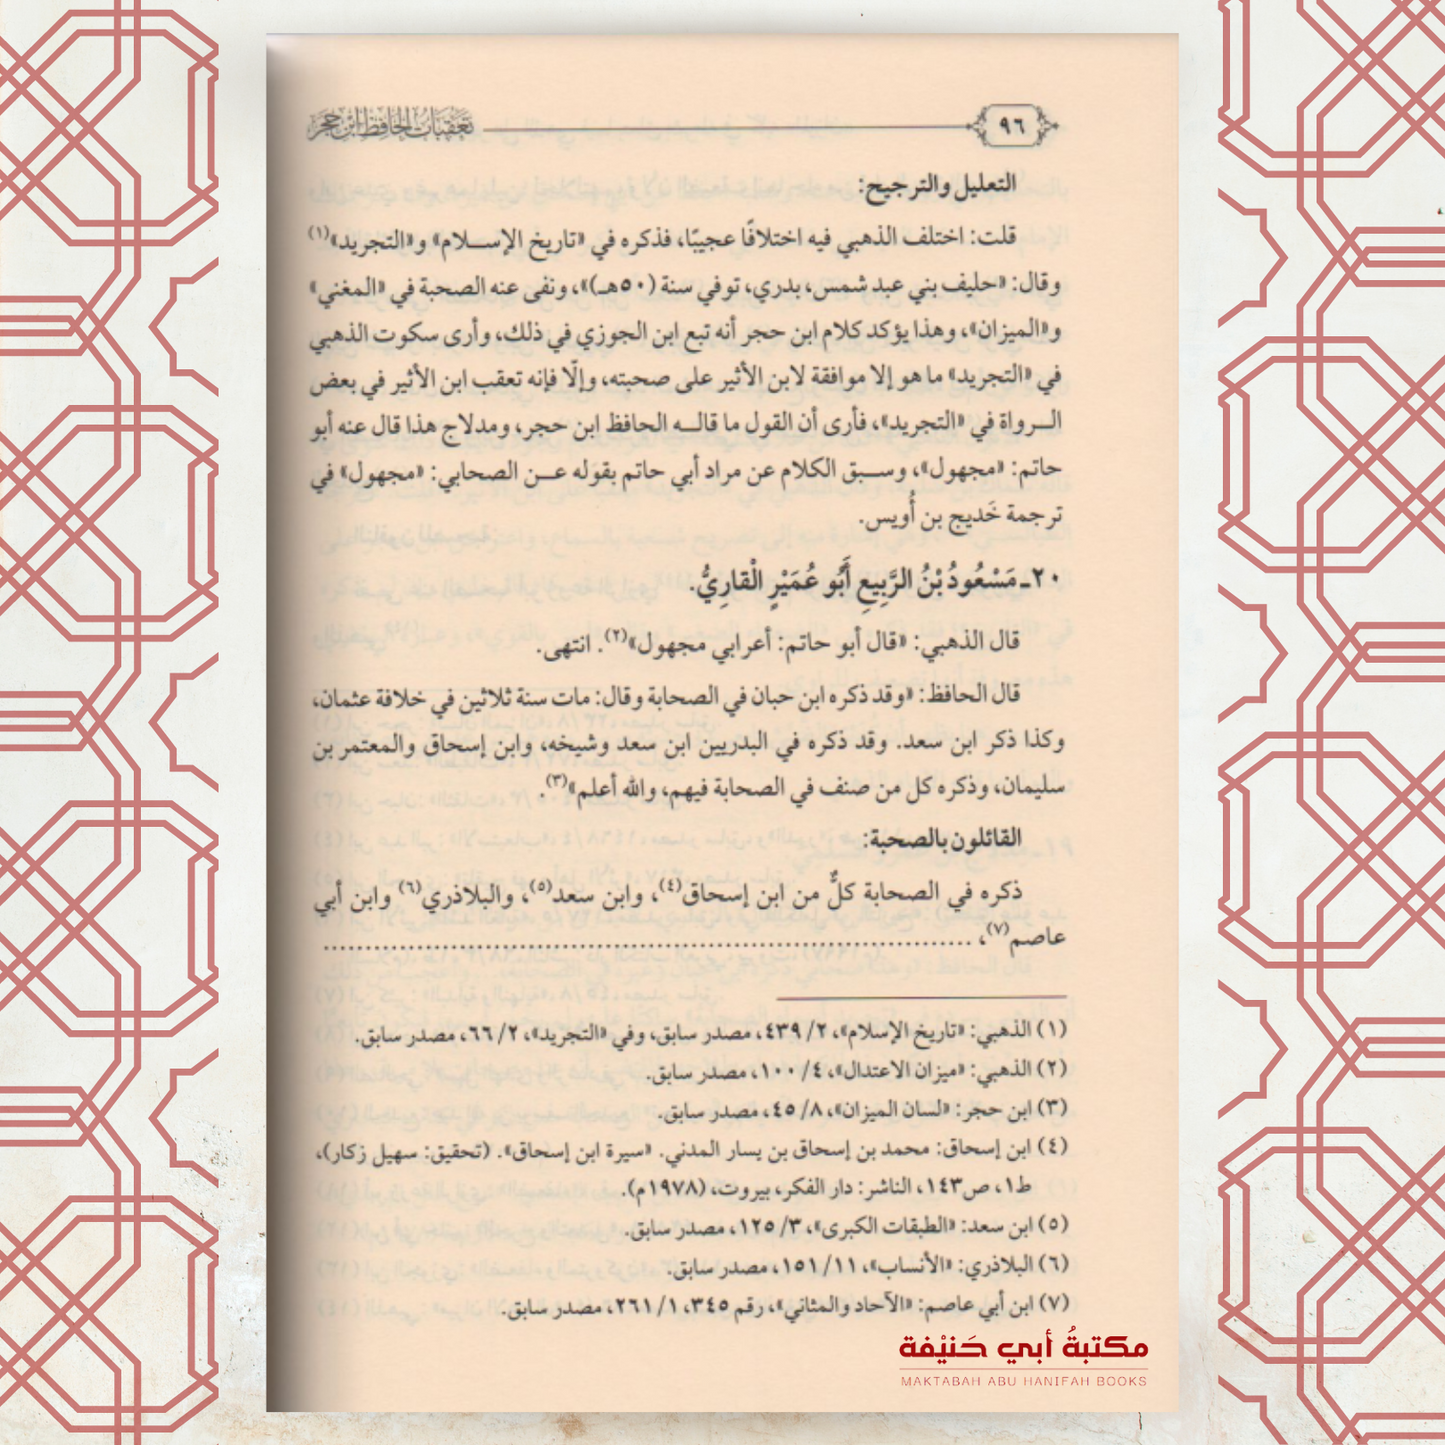 ٩٦
تعقبات الحافظ ابن حجر
التعليل والترجيح:
قلت: اختلف الذهبي فيه اختلافًا عجيبًا، فذكره في «تاريخ الإسلام» و«التجريد»(١)
وقال: «حليف بني عبد شمس، بدري، توفي سنة (٥٠هـ)»، ونفى عنه الصحبة في «المغني»
و«الميزان»، وهذا يؤكد كلام ابن حجر أنه تبع ابن الجوزي في ذلك، وأرى سكوت الذهبي
في «التجريد» ما هو إلا موافقة لابن الأثير على صحبته، وإلّا فإنه تعقب ابن الأثير في بعض
الرواة في «التجريد»، فأرى أن القول ما قاله الحافظ ابن حجر، ومدلاج هذا قال عنه أبو
حاتم: «مجهول»، وسبق الكلام عن مراد أبي حاتم بقوله عن الصحابي: «مجهول» في
ترجمة خَديج بن أُويس.
٢٠ـ مَسْعُودُ بْنُ الرَّبِيعِ أَبُو عُمَيْرٍ الْقَارِيُّ.
قال الذهبي: «قال أبو حاتم: أعرابي مجهول»(٢). انتهى.
قال الحافظ: «وقد ذكره ابن حبان في الصحابة وقال: مات سنة ثلاثين في خلافة عثمان،
وكذا ذكر ابن سعد. وقد ذكره في البدريين ابن سعد وشيخه، وابن إسحاق والمعتمر بن
سليمان، وذكره كل من صنف في الصحابة فيهم، والله أعلم»(٣).
القائلون بالصحبة:
ذكره في الصحابة كلٌّ من ابن إسحاق(٤)، وابن سعد(٥)، والبلاذري(٦) وابن أبي
عاصم(٧)، ................................................................................
(١) الذهبي: «تاريخ الإسلام»، ٢/ ٤٣٩، مصدر سابق، وفي «التجريد»، ٢/ ٦٦، مصدر سابق.
(٢) الذهبي: «ميزان الاعتدال»، ٤/ ١٠٠، مصدر سابق.
(٣) ابن حجر: «لسان الميزان»، ٨/ ٤٥، مصدر سابق.
(٤) ابن إسحاق: محمد بن إسحاق بن يسار المدني. «سيرة ابن إسحاق». (تحقيق: سهيل زكار)،
ط١، ص١٤٣، الناشر: دار الفكر، بيروت، (١٩٧٨م).
(٥) ابن سعد: «الطبقات الكبرى»، ٣/ ١٢٥، مصدر سابق.
(٦) البلاذري: «الأنساب»، ١١/ ١٥١، مصدر سابق.
(٧) ابن أبي عاصم: «الآحاد والمثاني»، رقم ٣٤٥، ١/ ٢٦١، مصدر سابق.
مكتبةُ أبي حَنيْفة
MAKTABAH ABU HANIFAH BOOKS